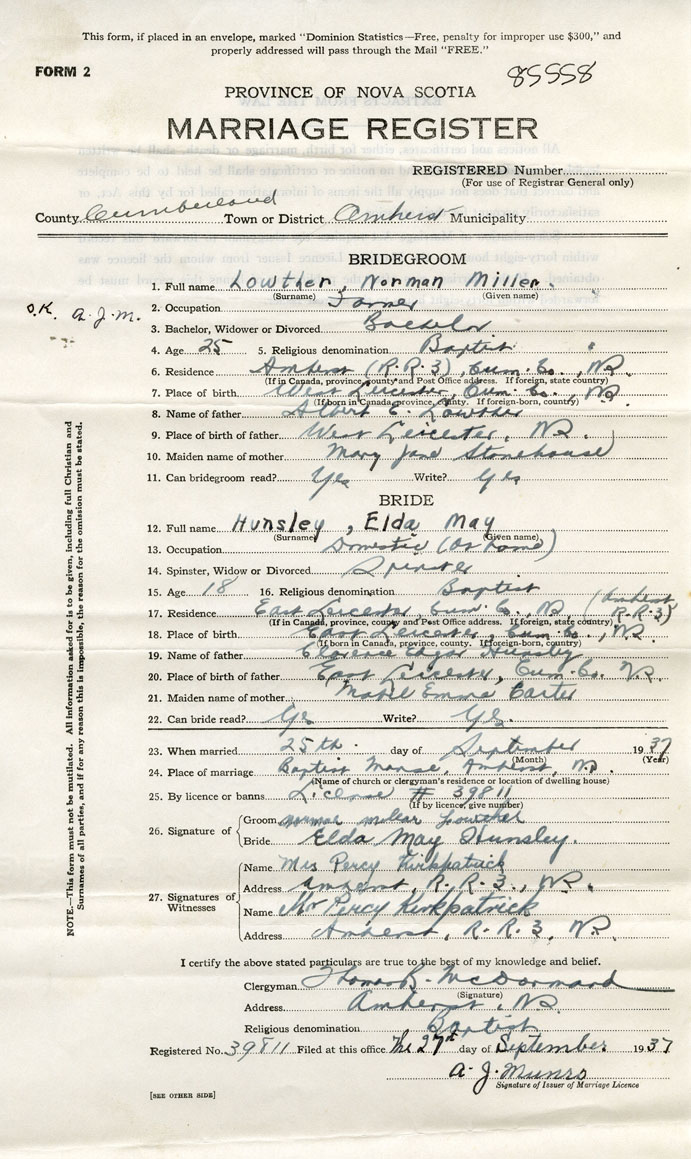 This form, if placed in an envelope, marked "Dominion Statistics—Free, penalty for improper use $300," and
properly addressed will pass through the Mail "FREE."
FORM 2
85558
PROVINCE OF NOVA SCOTIA
MARRIAGE REGISTER
REGISTERED Number
(For use of Registrar General only)
County Cumberland Town or District Amherst Municipality
BRIDEGROOM
1. Full name Lowther, Norman Miller.
(Surname) (Given name)
O.K. A.J.M.
2. Occupation Farmer
3. Bachelor, Widower or Divorced Bachelor
4. Age 25 5. Religious denomination Baptist
6. Residence Amherst (R.R.3), Cum. Co., N.S.
(If in Canada, province, county and Post Office address. If foreign, state country)
7. Place of birth West Leicester, Cum. Co. N.S.
(If born in Canada, province, county. If foreign-born, country)
8. Name of father Albert E. Lowther
9. Place of birth of father West Leicester, N.S.
10. Maiden name of mother Mary Jane Stonehouse
11. Can bridegroom read? Yes Write? Yes
BRIDE
12. Full name Hunsley, Elda May
(Surname) (Given name)
13. Occupation Domestic (at home)
14. Spinster, Widow or Divorced Spinster
15. Age 18 16. Religious denomination Baptist
17. Residence East Leicester, Cum. Co., N.S. (Amherst R.R.3)
(If in Canada, province, county and Post Office address. If foreign, state country)
18. Place of birth East Leicester, Cum. Co., N.S.
(If born in Canada, province, county. If foreign-born, country)
19. Name of father Clarence Edgar Hunsley
20. Place of birth of father East Leicester, Cum. Co. N.S.
21. Maiden name of mother Mabel Emma Carter
22. Can bride read? Yes Write? Yes.
23. When married 25th day of September 1937
(Month) (Year)
24. Place of marriage Baptist Manse, Amherst, N.S.
(Name of church or clergyman's residence or location of dwelling house)
25. By licence or banns License # 39811
(If by licence, give number)
26. Signature of
Groom Norman Miller Lowther
Bride Elda May Hunsley.
27. Signatures of Witnesses
Name Mrs Percy Kirkpatrick
Address Amherst, R.R.3., N.S.
Name Mr Percy Kirkpatrick
Address Amherst, R.R.3, N.S.
I certify the above stated particulars are true to the best of my knowledge and belief.
Clergyman Thomas B. McDormand
(Signature)
Address Amherst, N.S.
Religious denomination Baptist
Registered No. 39811 Filed at this office The 27th day of September 1937
A. J. Munro
Signature of Issuer of Marriage Licence
[SEE OTHER SIDE]
NOTE.—This form must not be mutilated. All information asked for is to be given, including full Christian and
Surnames of all parties, and if for any reason this is impossible, the reason for the omission must be stated.